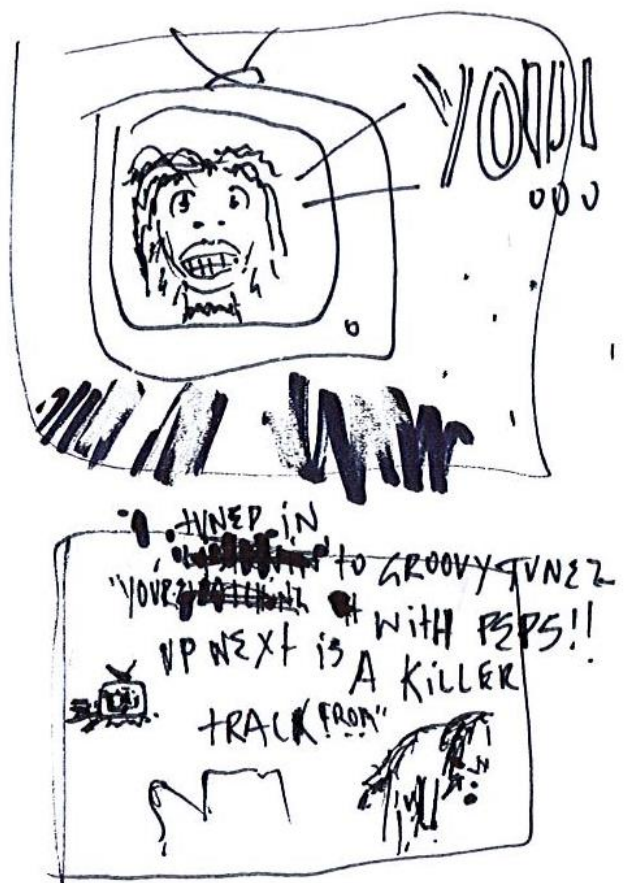 YOU!
TUNED iN
"YOUR TO GROOVY TUNEZ
WiTH PEPS!!
UP NEXT iS A KiLLER
TRACK FROM"